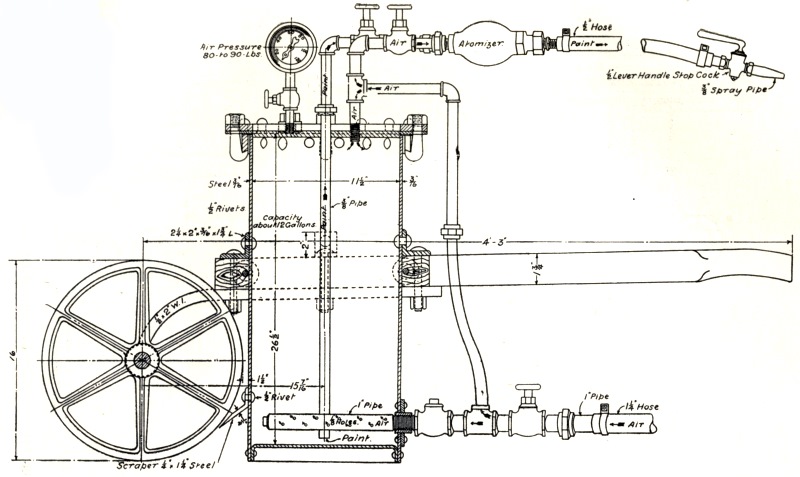 Air Pressure
80 to 90-Lbs.
Paint
Air
Atomizer
½" Hose
Paint
½" Lever Handle Stop Cock
⅜" Spray Pipe
Air
Air
Steel 3/16"
11½"
3/16"
½" Rivets
⅜" Pipe
Paint
Capacity
about 12 Gallons
2"
4'-3"
16"
26½"
1½"
½" Rivet
1" Pipe
Holes
Air
Paint.
1" Pipe
1¼" Hose
Air
Scraper ¼" x 1¼" Steel